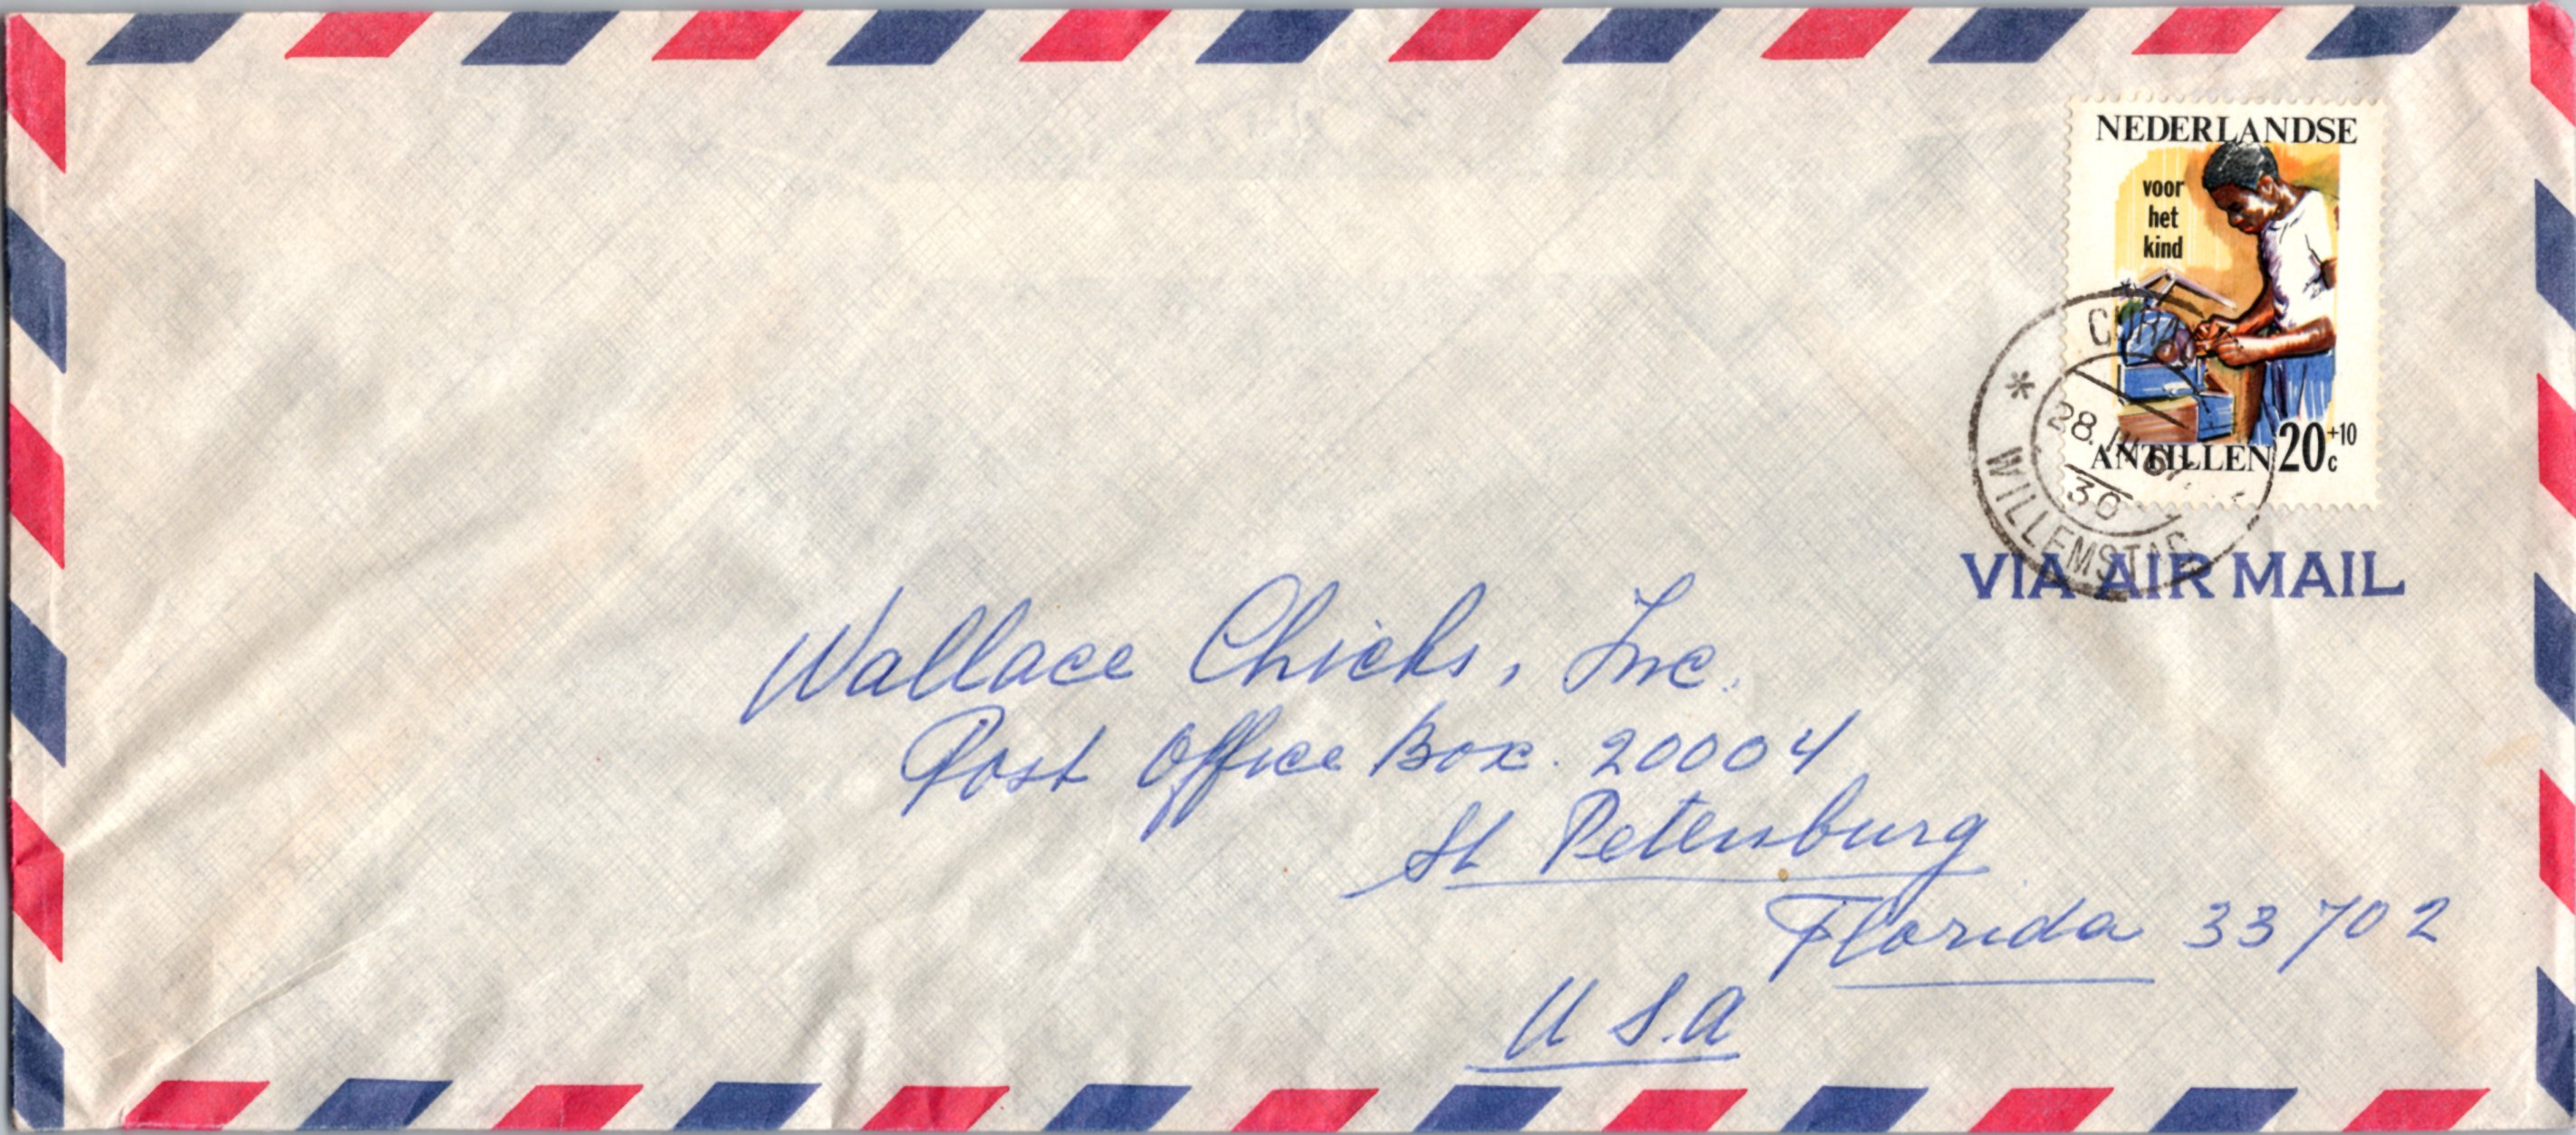 NEDERLANDSE
voor
het
kind
ANTILLEN 20 +10
c
WILLEMSTAD
28.
30
VIA AIR MAIL
Wallace Chicks, Inc.
Post Office Box. 20004
St Petersburg
Florida 33702
U S.A